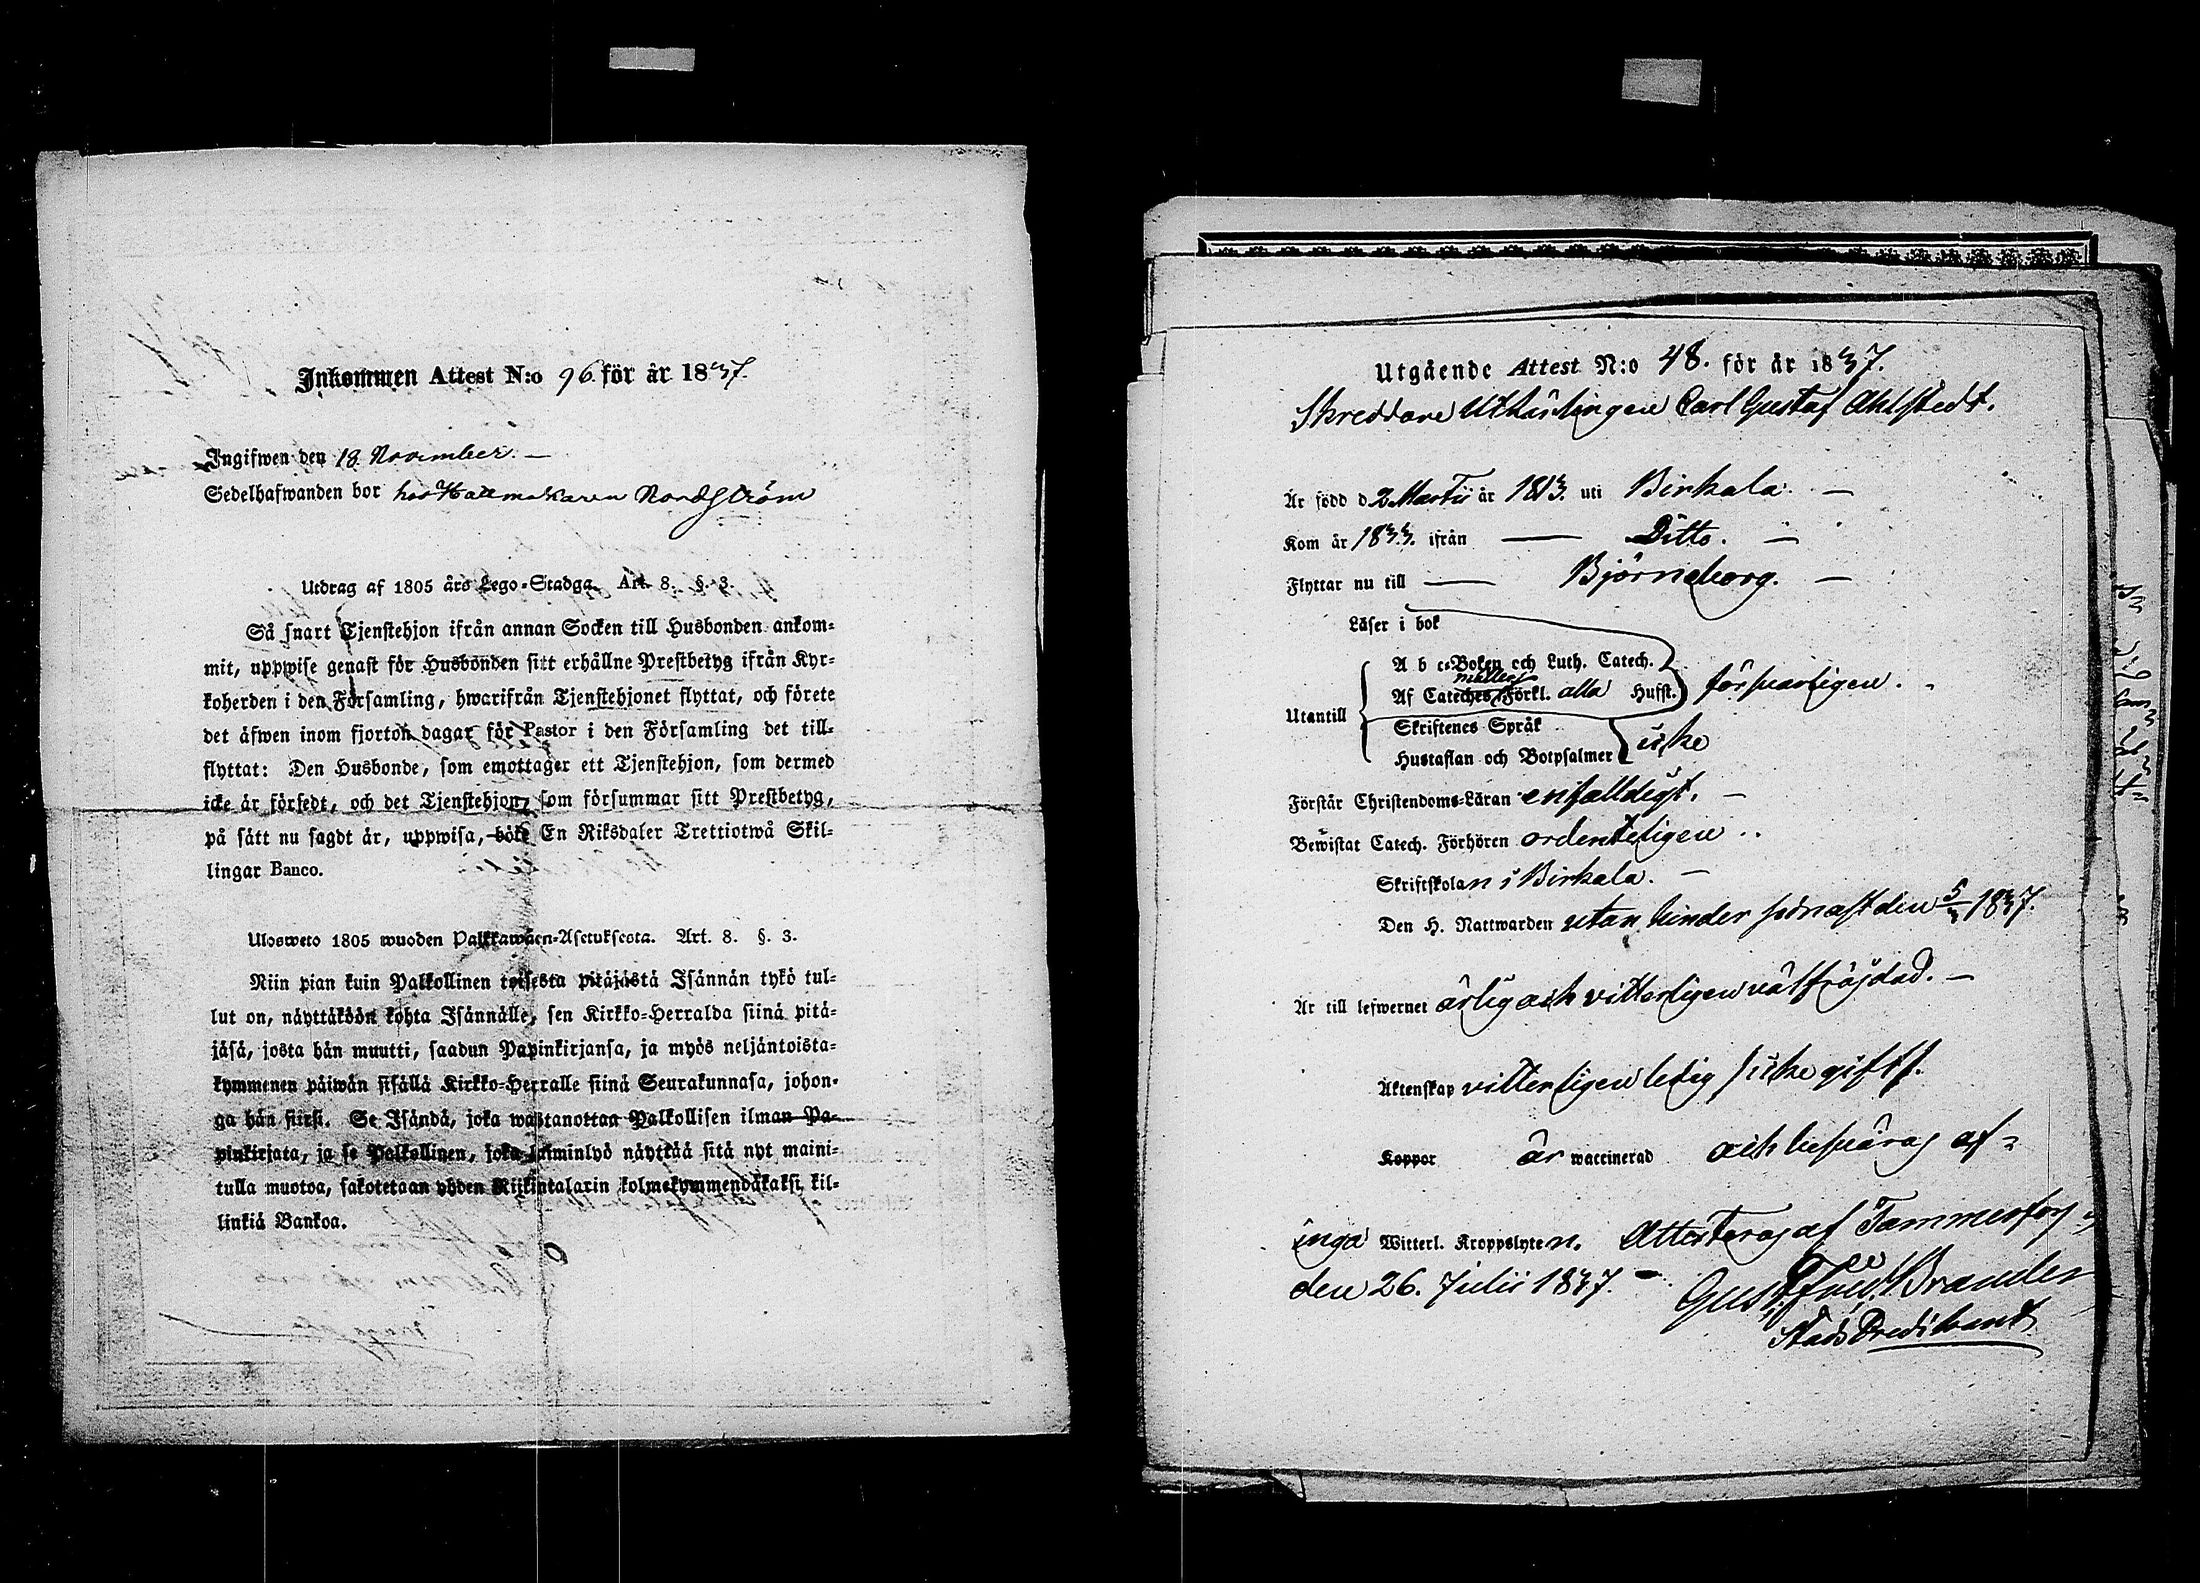 Inkommen Attest N:o 96. för år 1837.
Ingifwen den 18 November. —
Sedelhafwanden bor hos Hattmakaren Nordström
Utdrag af 1805 års Lego-Stadga. Art. 8. §. 3.
Så snart Tjenstehjon ifrån annan Socken till Husbonden ankom-
mit, uppwise genast för Husbonden sitt erhållne Prestbetyg ifrån Kyr-
koherden i den Församling, hwarifrån Tjenstehjonet flyttat, och förete
det äfwen inom fjorton dagar för Pastor i den Församling det till-
flyttat: Den Husbonde, som emottager ett Tjenstehjon, som dermed
icke är försedt, och det Tjenstehjon, som försummar sitt Prestbetyg,
på sätt nu sagdt är, uppwisa, böte En Riksdaler Trettiotwå Skil-
lingar Banco.
Ulosweto 1805 wuoden Palkkawäen-Asetuksesta. Art. 8. §. 3.
Niin pian kuin Palkollinen toisesta pitäjästä Isännän tykö tul-
lut on, näyttäköön kohta Isännälle, sen Kirkko-Herralda siinä pitä-
jäsä, josta hän muutti, saadun Papinkirjansa, ja myös neljäntoista-
kymmenen päiwän sisällä Kirkko-Herralle siinä Seurakunnasa, johon-
ga hän siirsi. Se Isändä, joka wastanottaa Palkollisen ilman Pa-
pinkirjata, ja se Palkollinen, joka laiminlyö näyttää sitä nyt maini-
tulla muotoa, sakotetaan yhden Rijkintalarin kolmekymmendäkaksi kil-
linkiä Bankoa.
Utgående Attest N:o 48. för år 1837.
Skreddare Utlärlingen Carl Gustaf Ahlstedt.
Är född d 2 Martii år 1813. uti Birkala. —
Kom år 1833. ifrån — Ditto. —
Flyttar nu till — Björneborg. —
Läser i bok
A b c-Boken och Luth. Catech.
mellers
Utantill Af Cateches Förkl. alla Hufst. försvarligen.
Skriftenes Språk
Hustaflan och Botpsalmer icke
Förstår Christendoms-Läran enfalldigt. —
Bewistat Catech. Förhören ordenteligen
Skriftskolan i Birkala. —
Den H. Nattwarden utan hinder sednast den 5/3 1837.
Är till lefwernet ärlig och vitterligen välfräjdad. —
Äktenskap vitterligen ledig / icke gift /.
Koppor är waccinerad och besväras af
inga Witterl. Kroppslyten. Attesteras af Tammerfors
den 26. Julii 1837. Gust. Fred. Brander
Stads Predikant